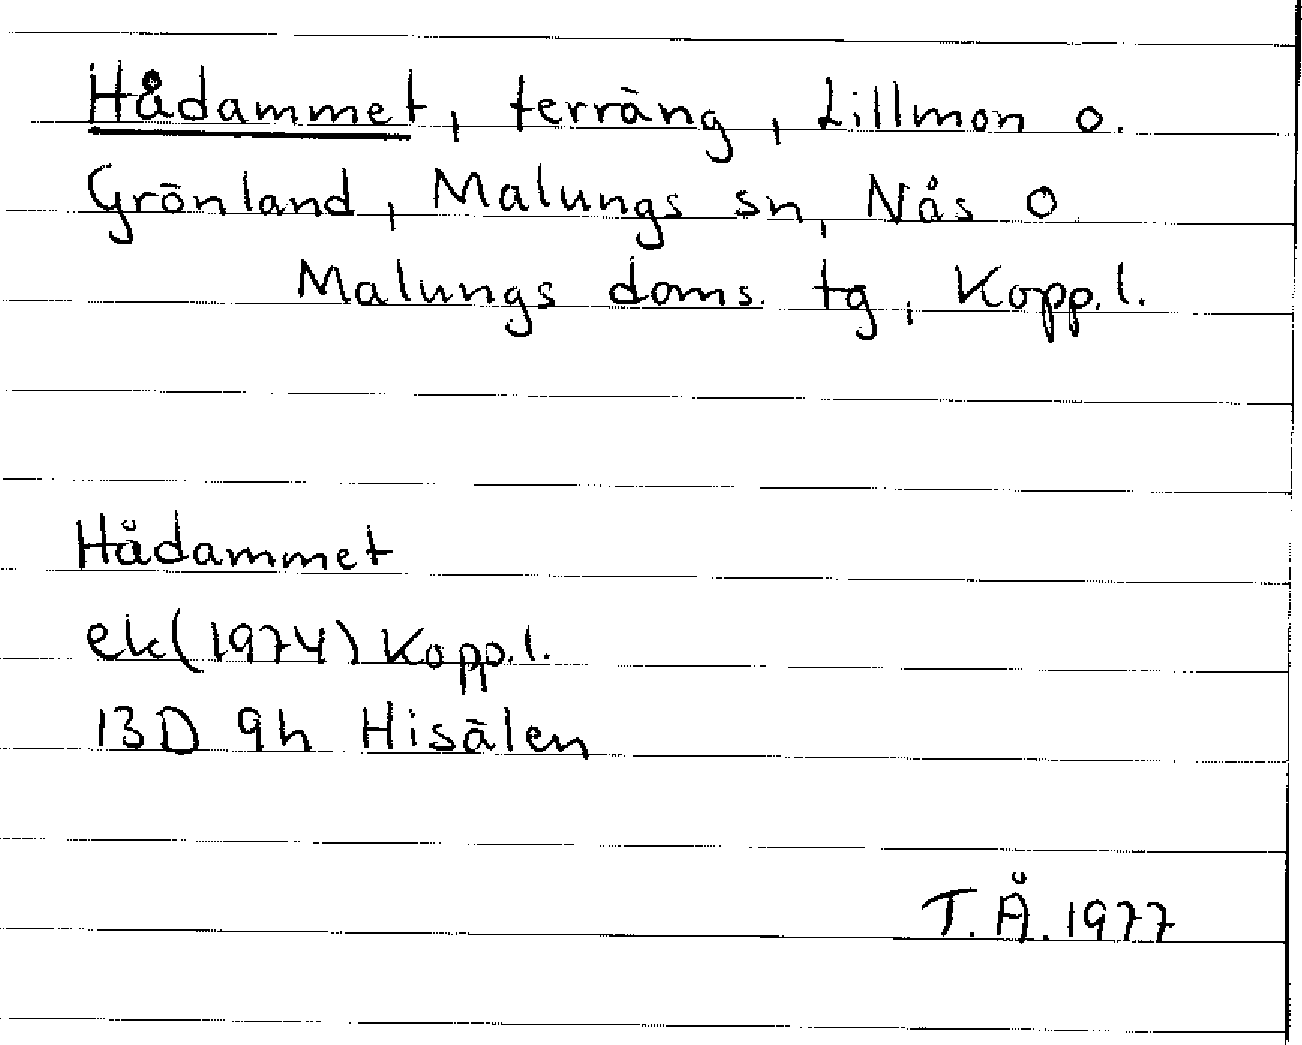 Hådammet, terräng, Lillmon o.
Grönland, Malungs sn, Nås o
Malungs doms. tg, Kopp.l.
Hådammet
ek(1974) Kopp.l.
13D 9h Hisälen
T.Å. 1977